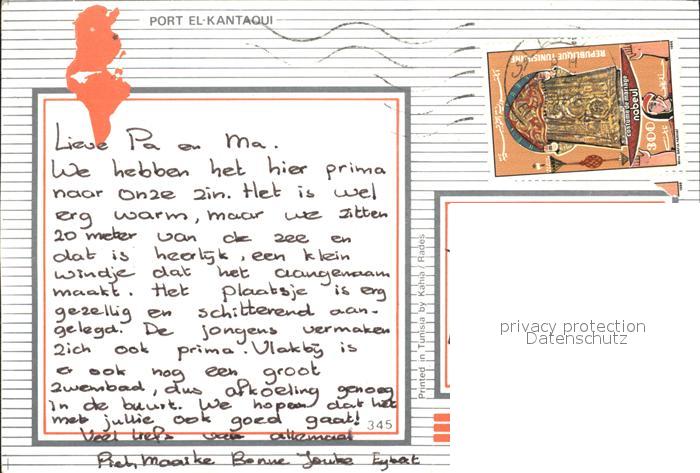 PORT EL-KANTAOUI
REPUBLIQUE TUNISIENNE
costume de mariage
nabeul
300
Lieve Pa en Ma.
We hebben het hier prima
naar onze zin. Het is wel
erg warm, maar we zitten
20 meter van de zee en
dat is heerlijk, een klein
windje dat het aangenaam
maakt. Het plaatsje is erg
gezellig en schitterend aan-
gelegd. De jongens vermaken
zich ook prima. Vlakbij is
er ook nog een groot
zwembad, dus afkoeling genoeg
in de buurt. We hopen dat het
met jullie ook goed gaat!
345
Veel liefs van allemaal
Piet, Maaike Bonne Jouke Eybert
Printed in Tunisia by Kahia / Rades
privacy protection
Datenschutz